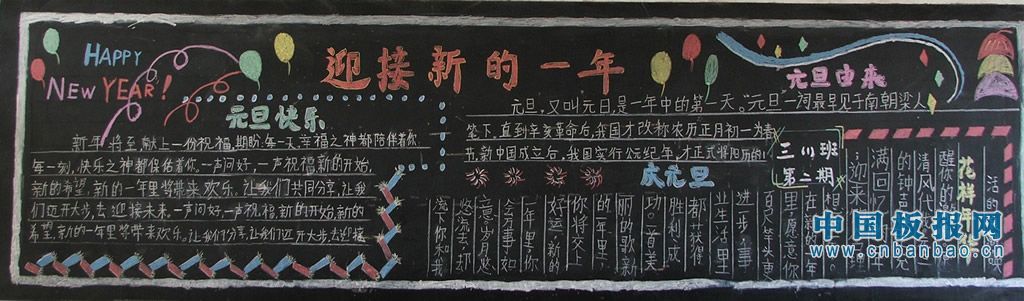 HAPPY
NEW YEAR!
迎接新的一年
元旦快乐
新年将至献上一份祝福,期盼每一天幸福之神都陪伴着你
每一刻,快乐之神都保佑着你。一声问好,一声祝福新的开始,
新的希望,新的一年里将带来欢乐。让我们共同分享,让我
们迈开大步,去迎接未来。一声问好,一声祝福,新的开始,新的
希望,新的一年里将带来欢乐。让我们分享,让我们迈开大步,去迎接
元旦由来
元旦,又叫元日,是一年中的第一天。“元旦”一词最早见于南朝梁人
笔下,直到辛亥革命后,我国才改称农历正月初一为春
节,新中国成立后,我国实行公元纪年,才正式将阳历的1
三(1)班
第二期
庆元旦
在新的一年
里愿意你
百尺竿头更
进步,事
业生活里
都获得
胜利成
功。一首美
丽的歌新
的一年里
你将交上
好运新的
一年里
会万事如
意岁月悠
悠流去却
花样
清风
的钟
满回忆
中国板报网
www.cnbanbao.cn